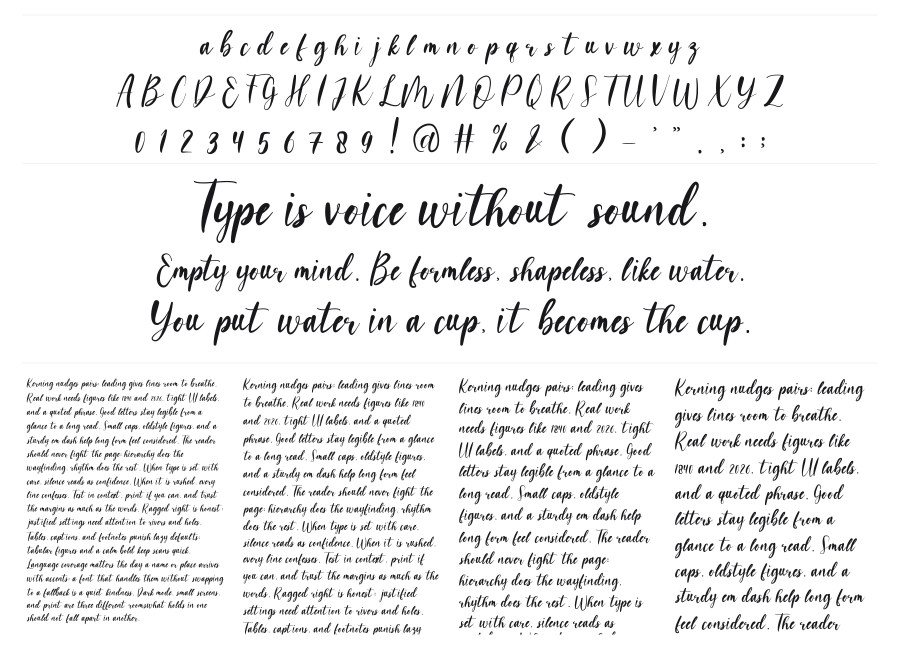 a b c d e f g h i j k l m n o p q r s t u v w x y z
A B C D E F G H I J K L M N O P Q R S T U V W X Y Z
0 1 2 3 4 5 6 7 8 9 ! @ # % & ( ) – ' " . , : ;
Type is voice without sound.
Empty your mind. Be formless, shapeless, like water.
You put water in a cup, it becomes the cup.
Kerning nudges pairs; leading gives lines room to breathe.
Real work needs figures like 1890 and 2026, tight UI labels,
and a quoted phrase. Good letters stay legible from a
glance to a long read. Small caps, oldstyle figures, and a
sturdy em dash help long form feel considered. The reader
should never fight the page; hierarchy does the
wayfinding, rhythm does the rest. When type is set with
care, silence reads as confidence. When it is rushed, every
line confesses. Test in context, print if you can, and trust
the margins as much as the words. Ragged right is honest;
justified settings need attention to rivers and holes.
Tables, captions, and footnotes punish lazy defaults;
tabular figures and a calm bold keep scans quick.
Language coverage matters the day a name or place arrives
with accents; a font that handles them without swapping
to a fallback is a quiet kindness. Dark mode, small screens,
and print are three different rooms—what holds in one
should not fall apart in another.
Kerning nudges pairs; leading gives lines room
to breathe. Real work needs figures like 1890
and 2026, tight UI labels, and a quoted
phrase. Good letters stay legible from a glance
to a long read. Small caps, oldstyle figures,
and a sturdy em dash help long form feel
considered. The reader should never fight the
page; hierarchy does the wayfinding, rhythm
does the rest. When type is set with care,
silence reads as confidence. When it is rushed,
every line confesses. Test in context, print if
you can, and trust the margins as much as the
words. Ragged right is honest; justified
settings need attention to rivers and holes.
Tables, captions, and footnotes punish lazy
Kerning nudges pairs; leading gives
lines room to breathe. Real work
needs figures like 1890 and 2026, tight
UI labels, and a quoted phrase. Good
letters stay legible from a glance to a
long read. Small caps, oldstyle
figures, and a sturdy em dash help
long form feel considered. The reader
should never fight the page;
hierarchy does the wayfinding,
rhythm does the rest. When type is
set with care, silence reads as
Kerning nudges pairs; leading
gives lines room to breathe.
Real work needs figures like
1890 and 2026, tight UI labels,
and a quoted phrase. Good
letters stay legible from a
glance to a long read. Small
caps, oldstyle figures, and a
sturdy em dash help long form
feel considered. The reader